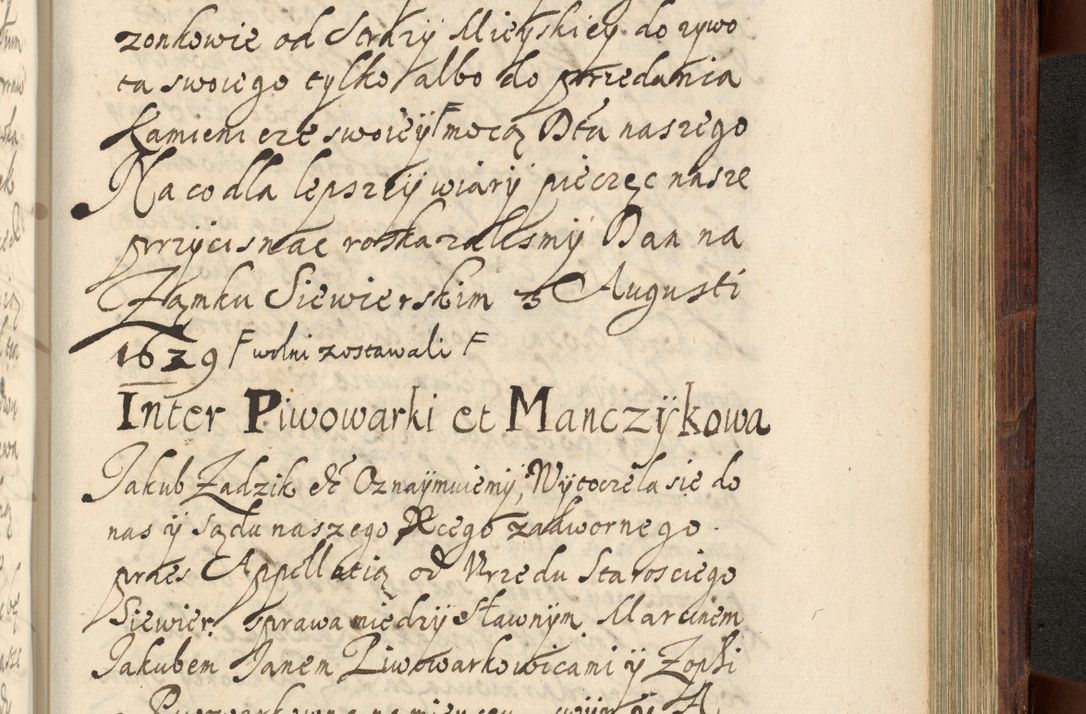 zonkowie od Strazÿ Mieyskiey do zywo
ta swoiego tylko albo do przedania
Kamieni cze swoieÿ F mocą Dtu naszego
Na co dla lepszeÿ wiarÿ pieczęc nasze
przÿcisnac roskazalismÿ Dan na
Zamku Siewierskim 3 Augusti
1629 F wolni zostawali F
Inter Piwowarki et Manczÿkowa
Jakub Zadzik etc Oznaÿmuiemÿ, Wÿtoczela sie do
nas ÿ sądu naszego Xcego zadwornego
przes Appellatią od Vrzedu Starosciego
Siewier: sprawa miedzÿ sławnÿm Marcinem
Jakubem Janem Piwowarkowicami ÿ Zophi